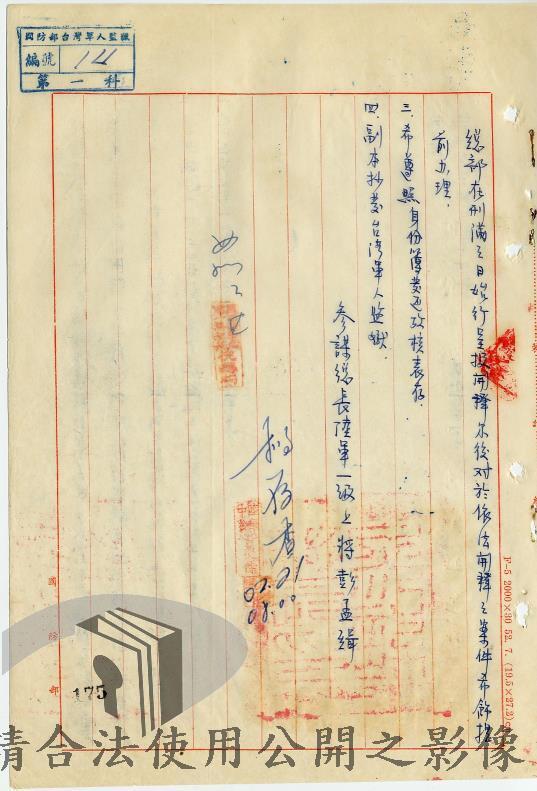 國防部台灣軍人監獄
編號 141
第一科
總部在刑滿之日始行呈报開釋尔後对於依法開釋之案件希飭提
前办理.
三.希遵照身份簿考核表存.
四.副本抄發台湾軍人監獄.
參謀總長陸軍一級上將彭孟緝
存查
02.21
08.00
F-5 2000×30 52. 7. (19.5×27.2)c
國防部
175
請合法使用公開之影像